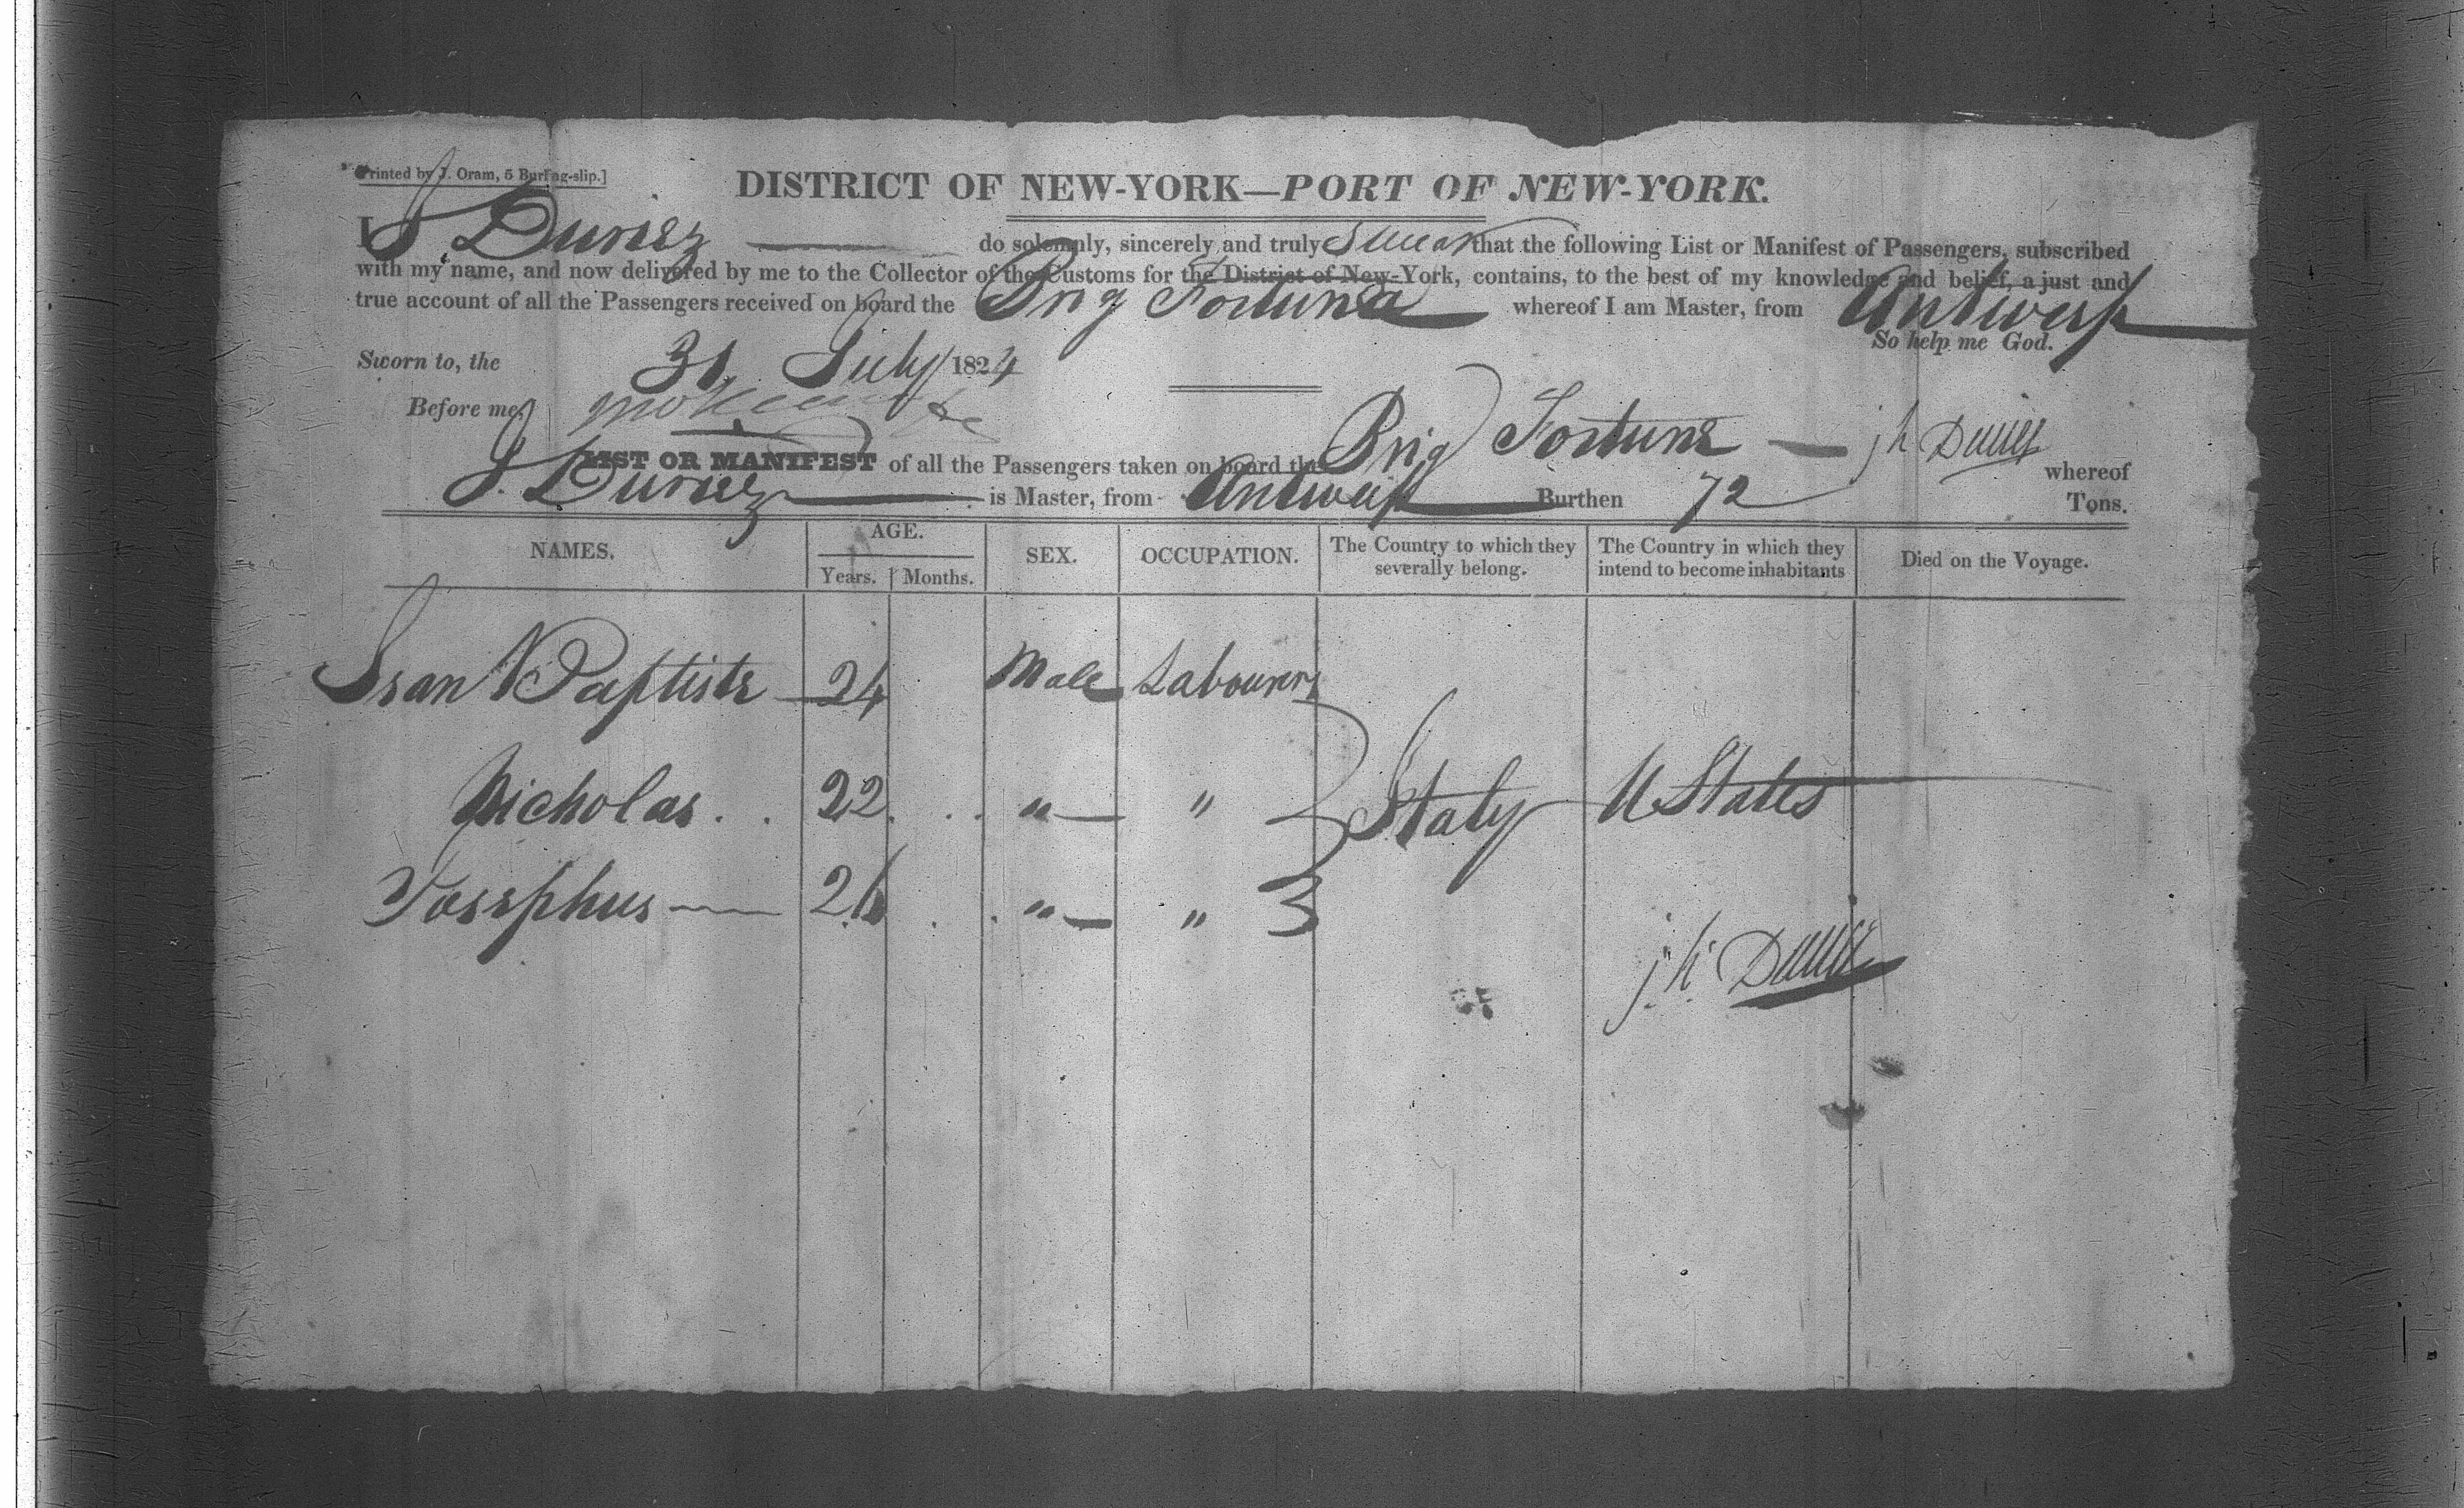 [Printed by J. Oram, 5 Burling-slip.]
DISTRICT OF NEW-YORK—PORT OF NEW-YORK.
I J. Duriez do solemnly, sincerely and truly Swear that the following List or Manifest of Passengers, subscribed
with my name, and now delivered by me to the Collector of the Customs for the District of New-York, contains, to the best of my knowledge and belief, a just and
true account of all the Passengers received on board the Brig Fortuna whereof I am Master, from Antwerp
So help me God.
Sworn to, the 31 July 1824
Before me,
Brig Fortune
LIST OR MANIFEST of all the Passengers taken on board the whereof
J. Duriez is Master, from Antwerp Burthen 72 Tons.
NAMES. AGE. SEX. OCCUPATION. The Country to which they severally belong. The Country in which they intend to become inhabitants Died on the Voyage.
Years. Months.
Baptiste 24 Male Labourer
Nicholas 22 " " Italy U States
Josephus 26 " "